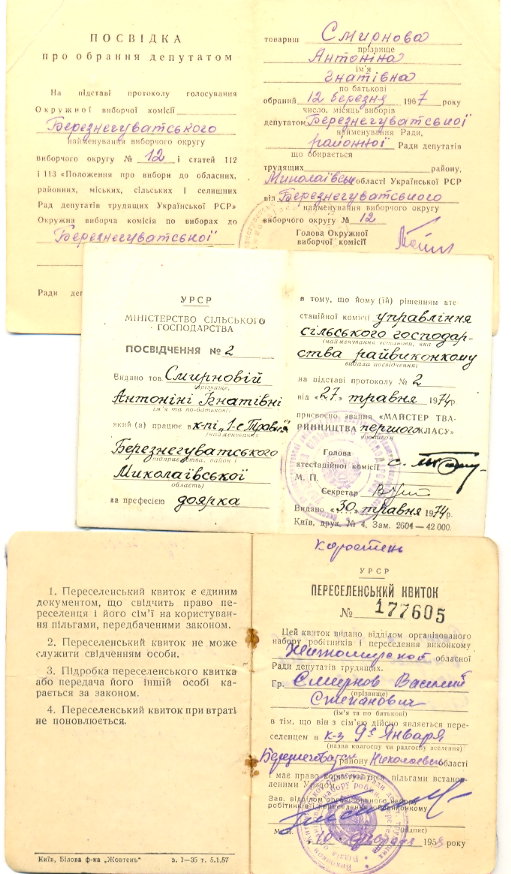 ПОСВІДКА
про обрання депутатом
На підставі протоколу голосування
Окружної виборчої комісії
Березнегуватського
найменування виборчого округу
виборчого округу № 12 і статей 112
і 113 «Положення про вибори до обласних,
районних, міських, сільських і селищних
Рад депутатів трудящих Української РСР»
Окружна виборча комісія по виборах до
Березнегуватської
Ради
товариш Смирнова
прізвище
Антоніна
ім'я
Гнатівна
по батькові
обраний 12 березня 1967 року
число, місяць виборів
депутатом Березнегуватської
найменування Ради,
районної Ради депутатів
що обирається
трудящих району,
Миколаївської області Української РСР
від Березнегуватського
найменування виборчого округу
виборчого округу № 12
Голова Окружної
виборчої комісії
УРСР
МІНІСТЕРСТВО СІЛЬСЬКОГО
ГОСПОДАРСТВА
ПОСВІДЧЕННЯ № 2
Видано тов. Смирновій
(прізвище,
Антоніні Гнатівні
ім'я та по-батькові)
який (а) працює в к-пі „1-е Травня"
Березнегуватського
Миколаївської
область)
за професією доярка
в тому, що йому (їй) рішенням ате-
стаційної комісії управління
сільського господар-
ства райвиконкому
на підставі протоколу № 2
від «27» травня 1974р.
присвоєно звання «МАЙСТЕР ТВА-
РИННИЦТВА першого КЛАСУ»
Голова
атестаційної комісії
М. П.
Секретар
Видано «30» травня 1974р.
Київ, друк. № 4. Зам. 2604—42 000.
1. Переселенський квиток є єдиним
документом, що свідчить право пе-
реселенця і його сім'ї на користуван-
ня пільгами, передбаченими законом.
2. Переселенський квиток не може
служити свідченням особи.
3. Підробка переселенського квитка
або передача його іншій особі ка-
рається за законом.
4. Переселенський квиток при втраті
не поновлюється.
Київ, Білова ф-ка „Жовтень" з. 1—35 т. 5.1.57
Коростень
УРСР
ПЕРЕСЕЛЕНСЬКИЙ КВИТОК
№ 177605
Цей квиток видано відділом організованого
набору робітників і переселення виконкому
Житомирської обласної
Ради депутатів трудящих.
Гр. Смирнов Василий
(прізвище)
Степанович
(ім'я та по батькові)
в тім, що він з сім'єю дійсно являється пере-
селенцем в к-з 9е Января
(назва колгоспу чи радгоспу вселення)
району Николаевской області
і має право користуватися пільгами встанов-
леними
Зав. відділом організованого набору
робітників і переселення виконкому
(підпис)